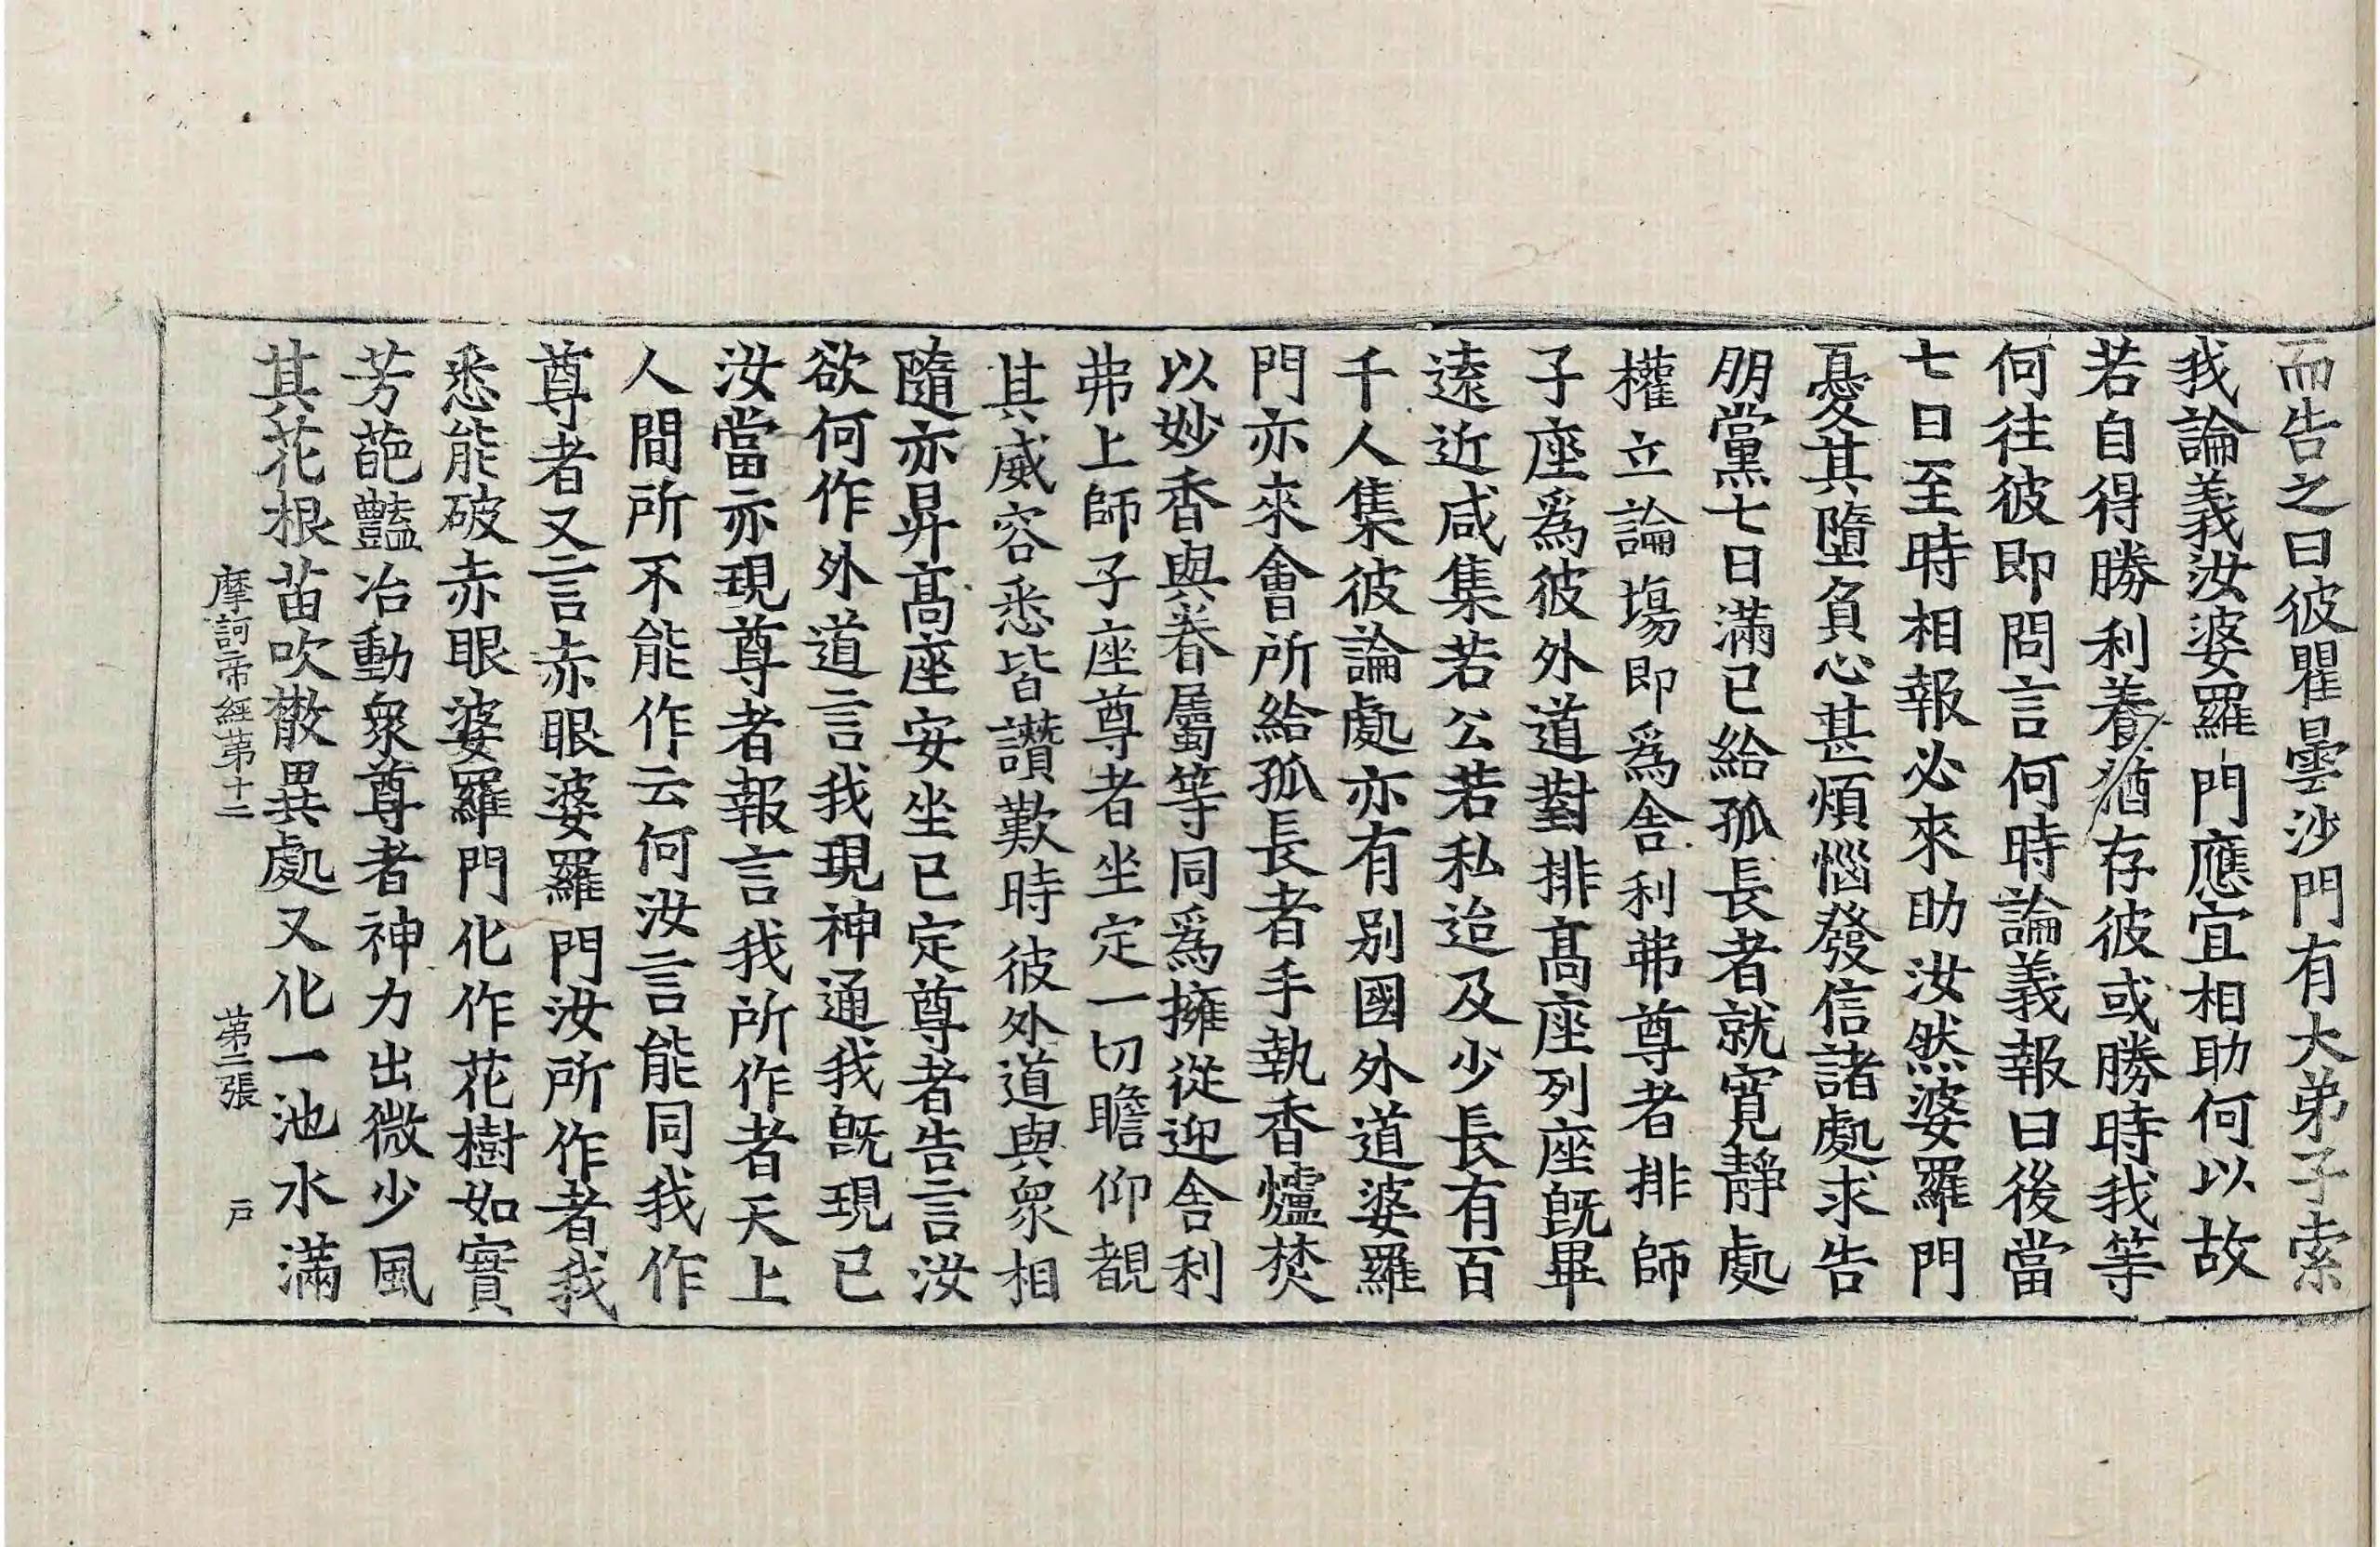 而告之曰彼瞿曇沙門有大弟子索
我論義汝婆羅門應宜相助何以故
若自得勝利養猶存彼或勝時我等
何往彼即問言何時論義報曰後當
七日至時相報必來助汝然婆羅門
憂其墮負心甚煩惱發信諸處求告
朋黨七日滿已給孤長者就寬靜處
權立論場即為舍利弗尊者排師
子座為彼外道對排髙座列座旣畢
遠近咸集若公若私迨及少長有百
千人集彼論處亦有別國外道婆羅
門亦來會所給孤長者手執香爐焚
以妙香與眷屬等同為擁從迎舍利
弗上師子座尊者坐定一切瞻仰覩
其威容悉皆讚歎時彼外道與衆相
隨亦昇髙座安坐已定尊者告言汝
欲何作外道言我現神通我旣現已
汝當亦現尊者報言我所作者天上
人間所不能作云何汝言能同我作
尊者又言赤眼婆羅門汝所作者我
悉能破赤眼婆羅門化作花樹如實
芳葩豔冶動衆尊者神力出微少風
其花根苗吹散異處又化一池水滿
摩訶帝經第十二 第二張 戶